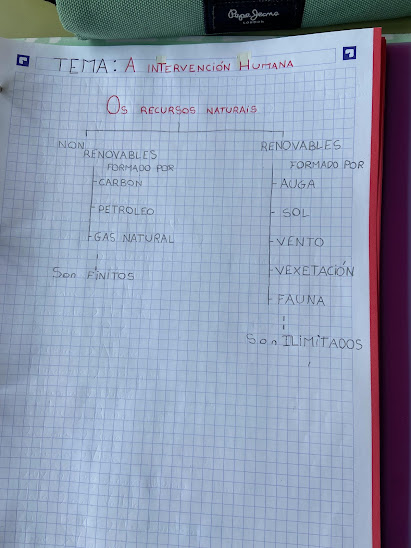 Pepe Jeans
LONDON
TEMA: A INTERVENCIÓN HUMANA
OS RECURSOS NATURAIS
NON RENOVABLES
FORMADO POR
CARBON
PETROLEO
GAS NATURAL
Son FINITOS
RENOVABLES
FORMADO POR
AUGA
SOL
VENTO
VEXETACIÓN
FAUNA
Son ILIMITADOS